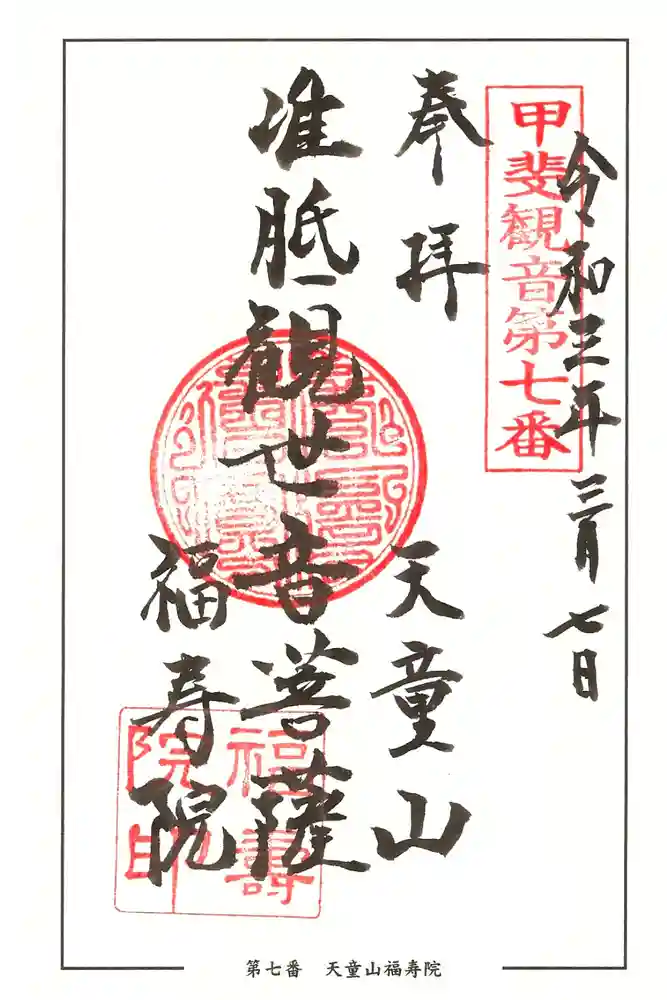 令和三年三月七日
甲斐観音第七番
奉拝
天童山
准胝観世音菩薩
福寿院
福壽院印
第七番 天童山福寿院